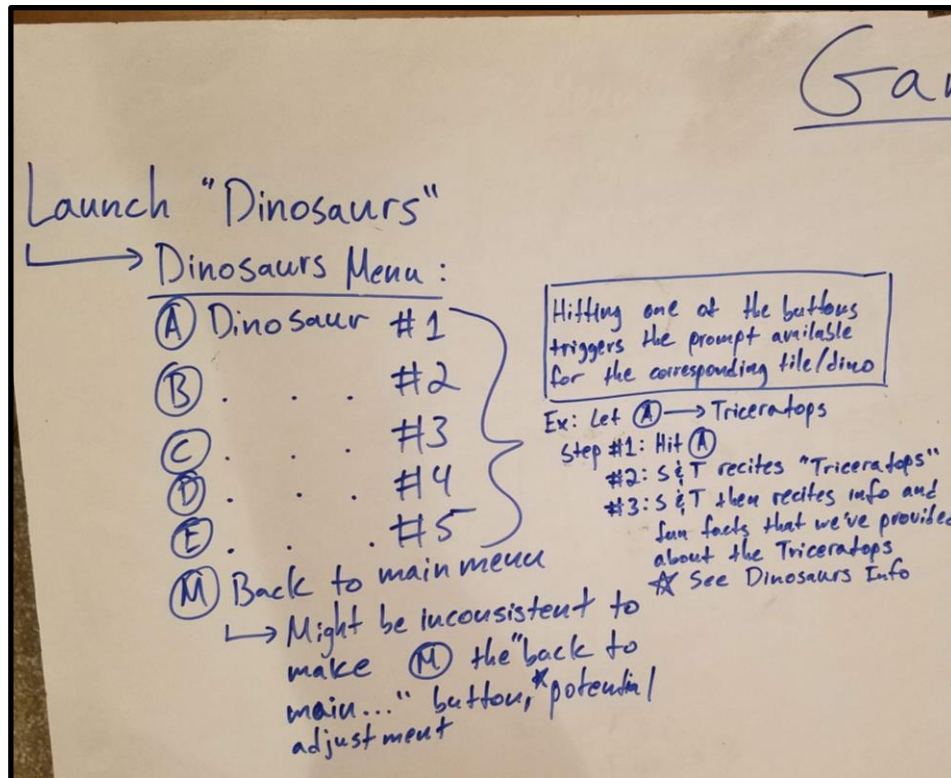 Gam
Launch "Dinosaurs"
→ Dinosaurs Menu:
Ⓐ Dinosaur #1
Ⓑ . . . #2
Ⓒ . . . #3
Ⓓ . . . #4
Ⓔ . . . #5
Ⓜ Back to main menu
↳ Might be inconsistent to
make Ⓜ the "back to
main..." button, *potential
adjustment
Hitting one of the buttons
triggers the prompt available
for the corresponding tile/dino
Ex: Let Ⓐ → Triceratops
Step #1: Hit Ⓐ
#2: S & T recites "Triceratops"
#3: S & T then recites info and
fun facts that we've provided
about the Triceratops
☆ See Dinosaurs Info